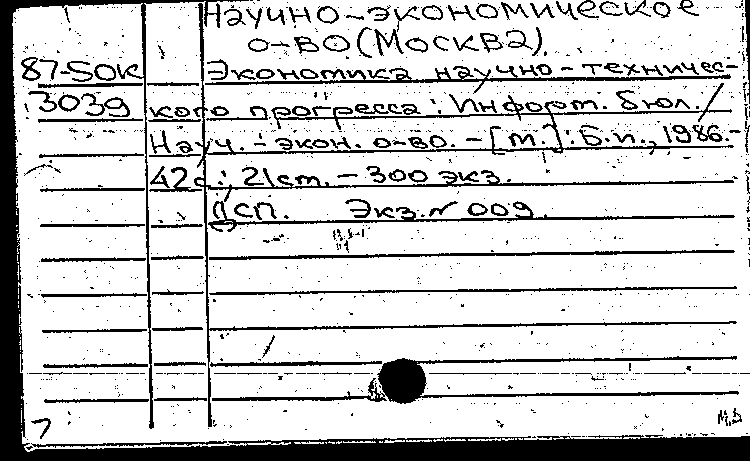 Научно-экономическое
о-во (Москва)
87-5ОК Экономика научно-техничес-
3039 кого прогресса: Информ. бюл. /
Науч.-экон. о-во. - [М.]: Б.и., 1986.-
42с.; 21см. - 300 экз.
ДСП. Экз. N 009.
7
М,Д